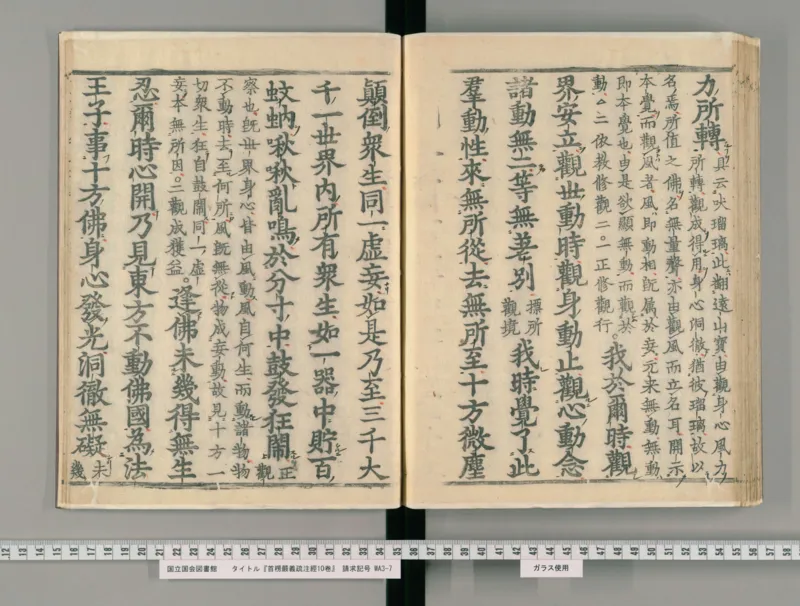 力所轉具云吠瑠璃此翻遠山寶由觀身心風力
所轉觀成得用身心洞徹猶彼瑠璃故以
名焉所值之佛名無量聲亦由觀風而立名耳開示
本覺而觀風者風即動相既属於妄元來無動無動
即本覺也由是欲顯無動而觀於
動△二依教修觀二。一正修觀行。我於爾時觀
界安立觀世動時觀身動止觀心動念
諸動無二等無差別標所觀境我時覺了此
羣動性來無所從去無所至十方微塵
顛倒衆生同一虛妄如是乃至三千大
千一世界內所有衆生如一器中貯百
蚊蚋啾啾亂鳴於分寸中鼓發狂鬧正觀
察也既世界身心皆由風動風自何生而動諸物物
不動時去至何所風既無從物成妄動故見十方一
切衆生狂自鼓鬧同一虛
妄本無所因。二觀成獲益。逢佛未幾得無生
忍爾時心開乃見東方不動佛國為法
王子事十方佛身心發光洞徹無礙未幾
国立国会図書館 タイトル『首楞嚴義疏注經10巻』 請求記号 WA3-7
ガラス使用